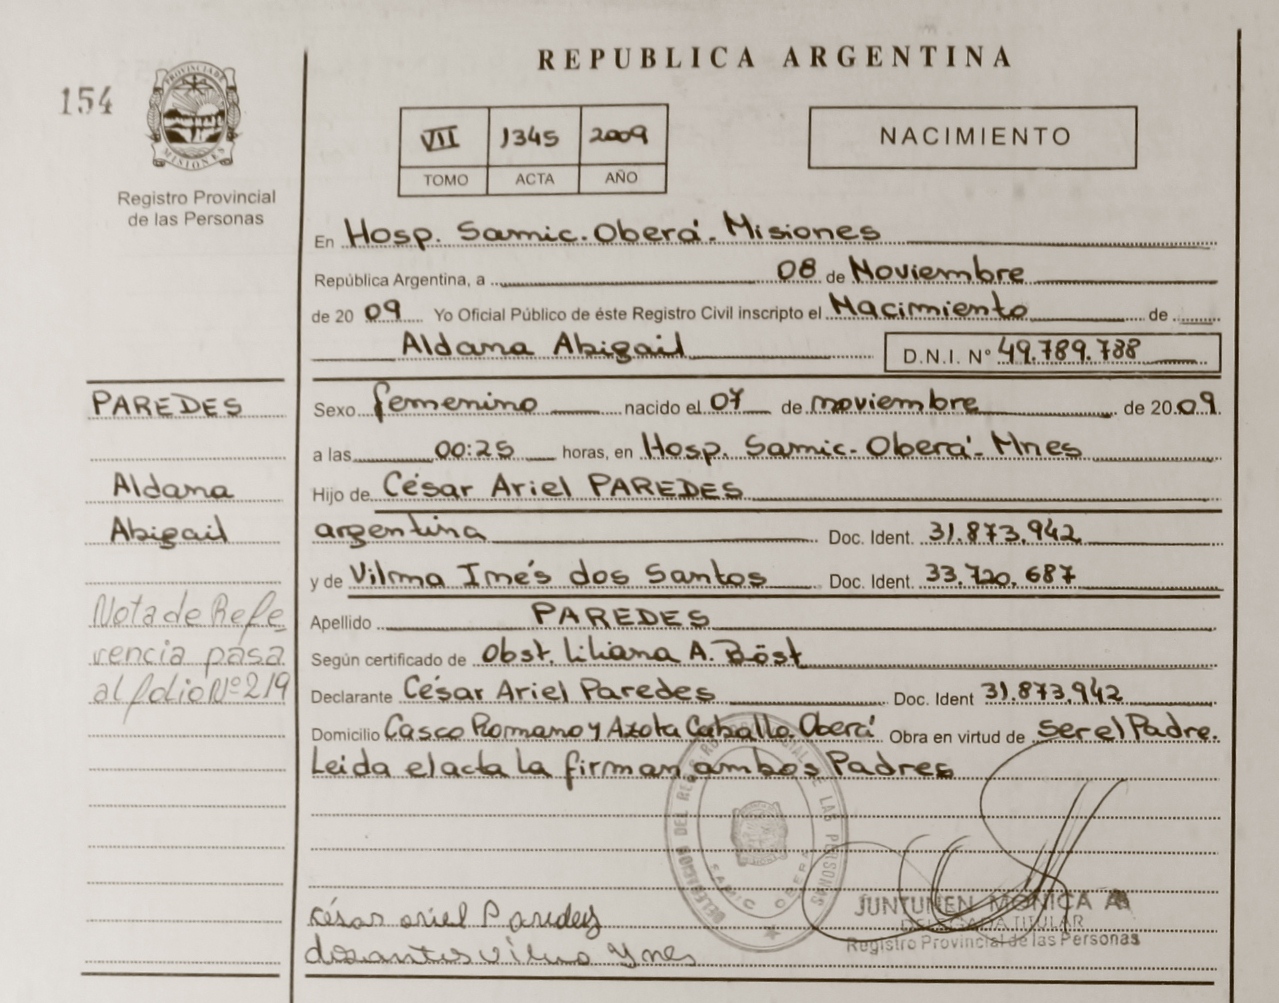 REPUBLICA ARGENTINA
154
PROVINCIA DE
MISIONES
Registro Provincial
de las Personas
VII 1345 2009
TOMO ACTA AÑO
NACIMIENTO
En Hosp. Samic. Oberá. Misiones
República Argentina, a 08 de Noviembre
de 20 09 Yo Oficial Público de éste Registro Civil inscripto el Nacimiento de
Aldana Abigail D.N.I. N° 49.789.788
PAREDES
Aldana
Abigail
Nota de Refe
rencia pasa
al folio Nº 219
Sexo femenino nacido el 07 de noviembre de 20 09
a las 00:25 horas, en Hosp. Samic. Oberá. Mnes
Hijo de César Ariel PAREDES
argentina Doc. Ident. 31.873.942
y de Vilma Inés dos Santos Doc. Ident. 33.720.687
Apellido PAREDES
Según certificado de Obst. Liliana A. Böst
Declarante César Ariel Paredes Doc. Ident 31.873.942
Domicilio Casco Romano y Azota Caballo. Oberá Obra en virtud de ser el Padre.
Leida el acta la firman ambos Padres
DELEGACION DEL REG LAS PERSONAS
SAMIC OBERA
JUNTUNEN MONICA A
DELEGADA TITULAR
Registro Provincial de las Personas
césar ariel Paredes
dosantos vilma ynes